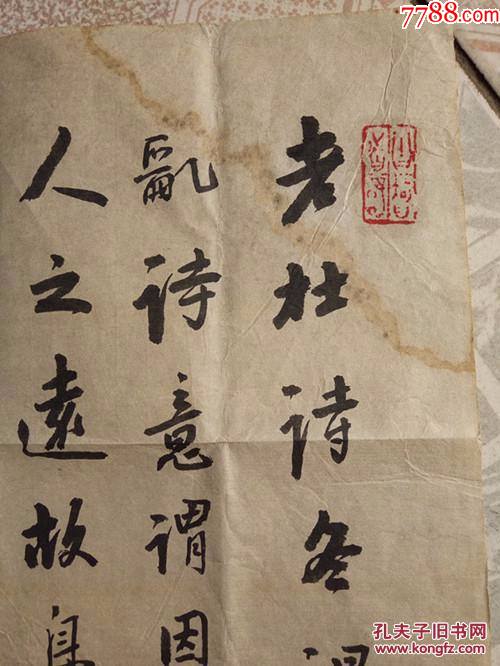 7788.com
老杜诗冬
亂诗意谓因
人之遠故
孔夫子旧书网
www.kongfz.com